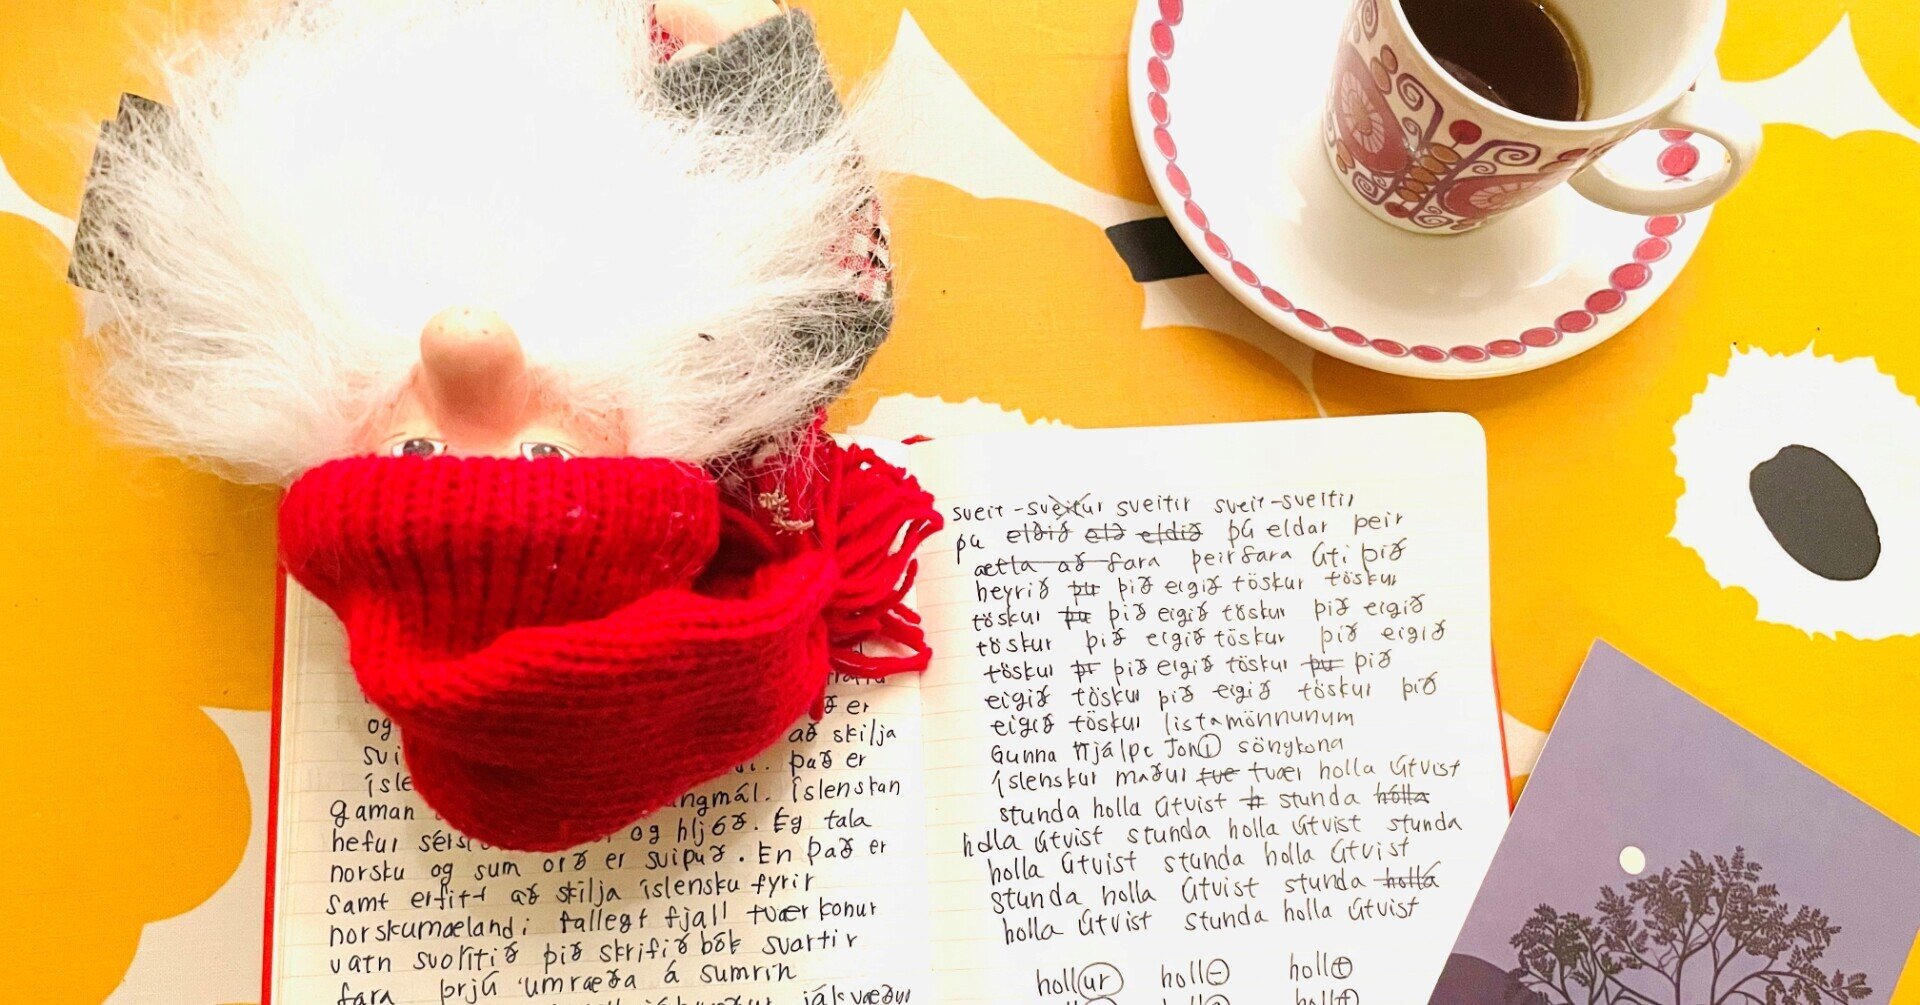 er
og að skilja
svi það er
ísle ungmál. íslenskan
gaman og hljóð. Ég tala
hefur
norsku og sum orð er svipuð. En það er
samt erfitt að skilja íslensku fyrir
norskumælandi fallegt fjall tvær konur
vatn svolítið þið skrifið bók svartir
fara þrjú umræða á sumrin
sveit-sveitur sveitir sveit-sveitir
þú eldið eld eldið þú eldar þeir
ætla að fara þeir fara úti þið
heyrið þu þið eigið töskur töskur
töskur þu þið eigið töskur þið eigið
töskur þið eigið töskur þið eigið
töskur þi þið eigið töskur þu þið
eigið töskur þið eigið töskur þið
eigið töskur listamönnunum
Gunna Hjálpe Joni söngkona
íslenskur maður tve tvær holla útvist
stunda holla útvist h stunda hólla
holla útvist stunda holla útvist stunda
holla útvist stunda holla útvist
stunda holla útvist stunda hollá
holla útvist stunda holla útvist
hollur holl- hollt